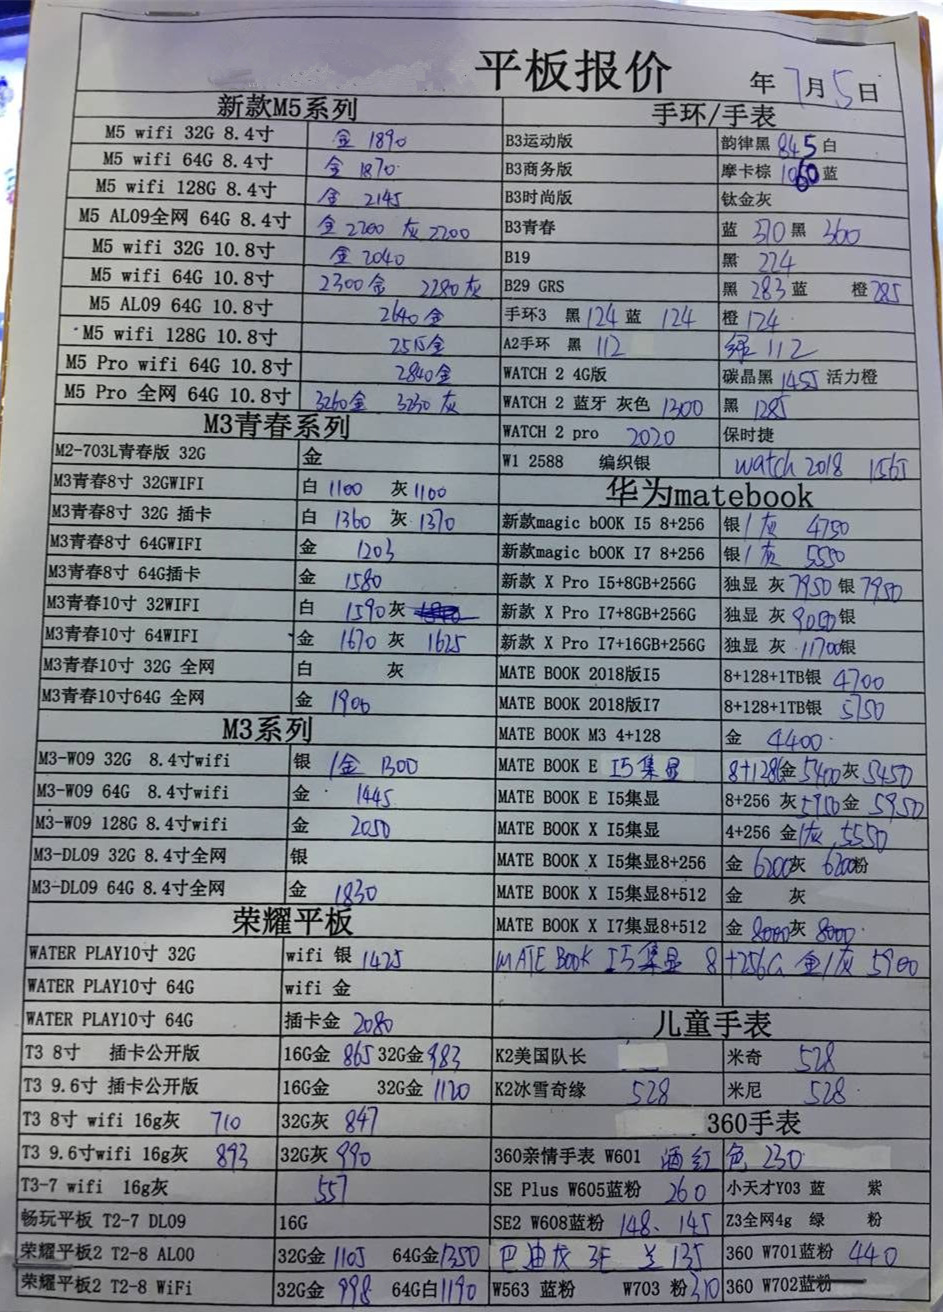 平板报价
年 7月5日
新款M5系列
M5 wifi 32G 8.4寸 金 1890
M5 wifi 64G 8.4寸 金 1870
M5 wifi 128G 8.4寸 金 2145
M5 AL09全网 64G 8.4寸 金 2200 灰 2200
M5 wifi 32G 10.8寸 金 2040
M5 wifi 64G 10.8寸 2300金 2280灰
M5 AL09 64G 10.8寸 2640金
M5 wifi 128G 10.8寸 2515金
M5 Pro wifi 64G 10.8寸 2840金
M5 Pro 全网 64G 10.8寸 3260金 3230灰
M3青春系列
M2-703L青春版 32G 金
M3青春8寸 32GWIFI 白 1100 灰 1100
M3青春8寸 32G 插卡 白 1360 灰 1370
M3青春8寸 64GWIFI 金 1203
M3青春8寸 64G插卡 金 1580
M3青春10寸 32WIFI 白 1590 灰
M3青春10寸 64WIFI 金 1670 灰 1625
M3青春10寸 32G 全网 白 灰
M3青春10寸64G 全网 金 1900
M3系列
M3-W09 32G 8.4寸wifi 银/金 1300
M3-W09 64G 8.4寸wifi 金 1445
M3-W09 128G 8.4寸wifi 金 2050
M3-DL09 32G 8.4寸全网 银
M3-DL09 64G 8.4寸全网 金 1830
荣耀平板
WATER PLAY10寸 32G wifi 银 1425
WATER PLAY10寸 64G wifi 金
WATER PLAY10寸 64G 插卡金 2080
T3 8寸 插卡公开版 16G金 865 32G金 983
T3 9.6寸 插卡公开版 16G金 32G金 1120
T3 8寸 wifi 16g灰 710 32G灰 847
T3 9.6寸wifi 16g灰 893 32G灰 990
T3-7 wifi 16g灰 557
畅玩平板 T2-7 DL09 16G
荣耀平板2 T2-8 AL00 32G金 1105 64G金1350
荣耀平板2 T2-8 WiFi 32G金 998 64G白1190
手环/手表
B3运动版 韵律黑 845 白
B3商务版 摩卡棕 1060 蓝
B3时尚版 钛金灰
B3青春 蓝 370 黑 360
B19 黑 224
B29 GRS 黑 283 蓝 橙 285
手环3 黑 124 蓝 124 橙 124
A2手环 黑 112 绿 112
WATCH 2 4G版 碳晶黑 1455 活力橙
WATCH 2 蓝牙 灰色 1300 黑 1285
WATCH 2 pro 2020 保时捷
W1 2588 编织银 watch 2018 1565
华为matebook
新款magic bOOK I5 8+256 银/灰 4750
新款magic bOOK I7 8+256 银/灰 5550
新款 X Pro I5+8GB+256G 独显 灰 7950 银 7950
新款 X Pro I7+8GB+256G 独显 灰 9050 银
新款 X Pro I7+16GB+256G 独显 灰 11700银
MATE BOOK 2018版I5 8+128+1TB银 4700
MATE BOOK 2018版I7 8+128+1TB银 5750
MATE BOOK M3 4+128 金 4400
MATE BOOK E I5集显 8+128G金 5400 灰 5450
MATE BOOK E I5集显 8+256 灰 5900 金 5950
MATE BOOK X I5集显 4+256 金/灰 5550
MATE BOOK X I5集显8+256 金 6200 灰 6200 粉
MATE BOOK X I5集显8+512 金 灰
MATE BOOK X I7集显8+512 金 8000 灰 8000
MATE Book I5集显 8+256G 金/灰 5900
儿童手表
K2美国队长 米奇 528
K2冰雪奇缘 528 米尼 528
360手表
360亲情手表 W601 酒红色 230
SE Plus W605蓝粉 260 小天才Y03 蓝 紫
SE2 W608蓝粉 148、145 Z3全网4g 绿 粉
巴迪龙 3E 兰 135 360 W701蓝粉 440
W563 蓝粉 W703 粉 310 360 W702蓝粉